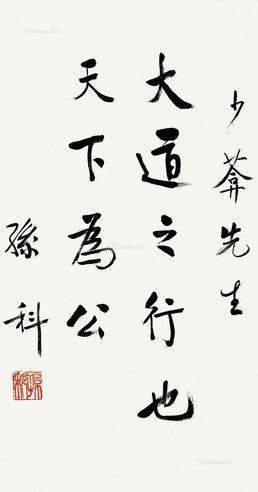 少葊先生
大道之行也
天下為公
孫科